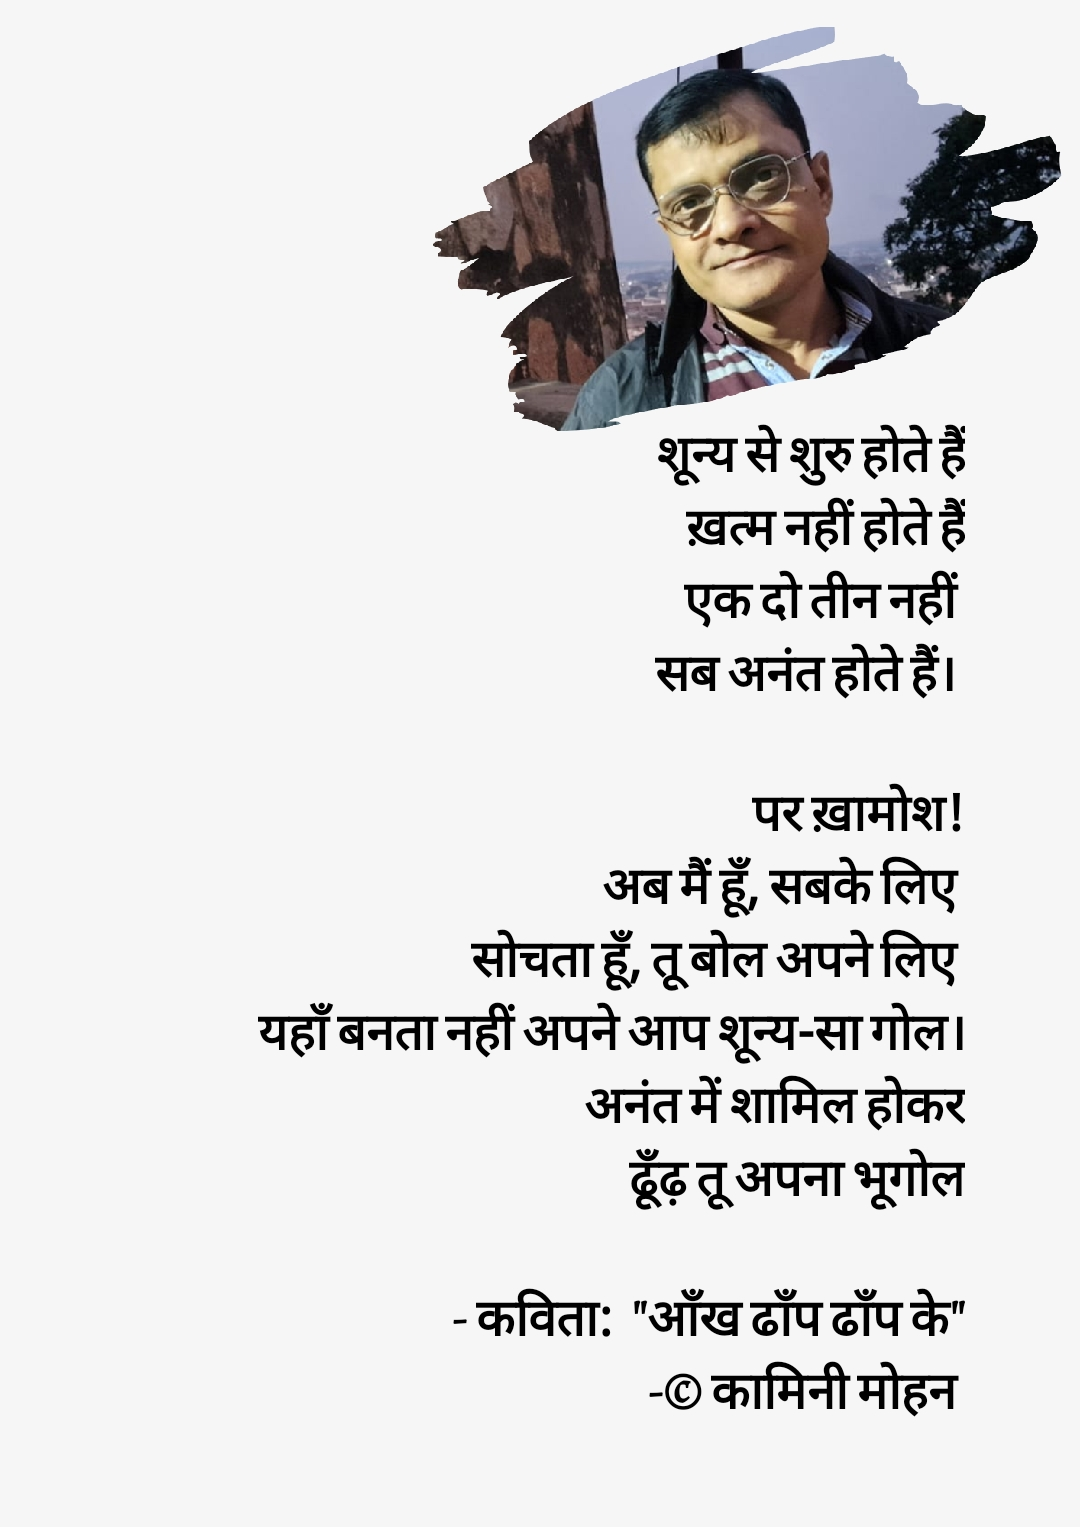 शून्य से शुरु होते हैं
ख़त्म नहीं होते हैं
एक दो तीन नहीं
सब अनंत होते हैं।
पर ख़ामोश!
अब मैं हूँ, सबके लिए
सोचता हूँ, तू बोल अपने लिए
यहाँ बनता नहीं अपने आप शून्य-सा गोल।
अनंत में शामिल होकर
ढूँढ़ तू अपना भूगोल
- कविता: "आँख ढाँप ढाँप के"
-© कामिनी मोहन